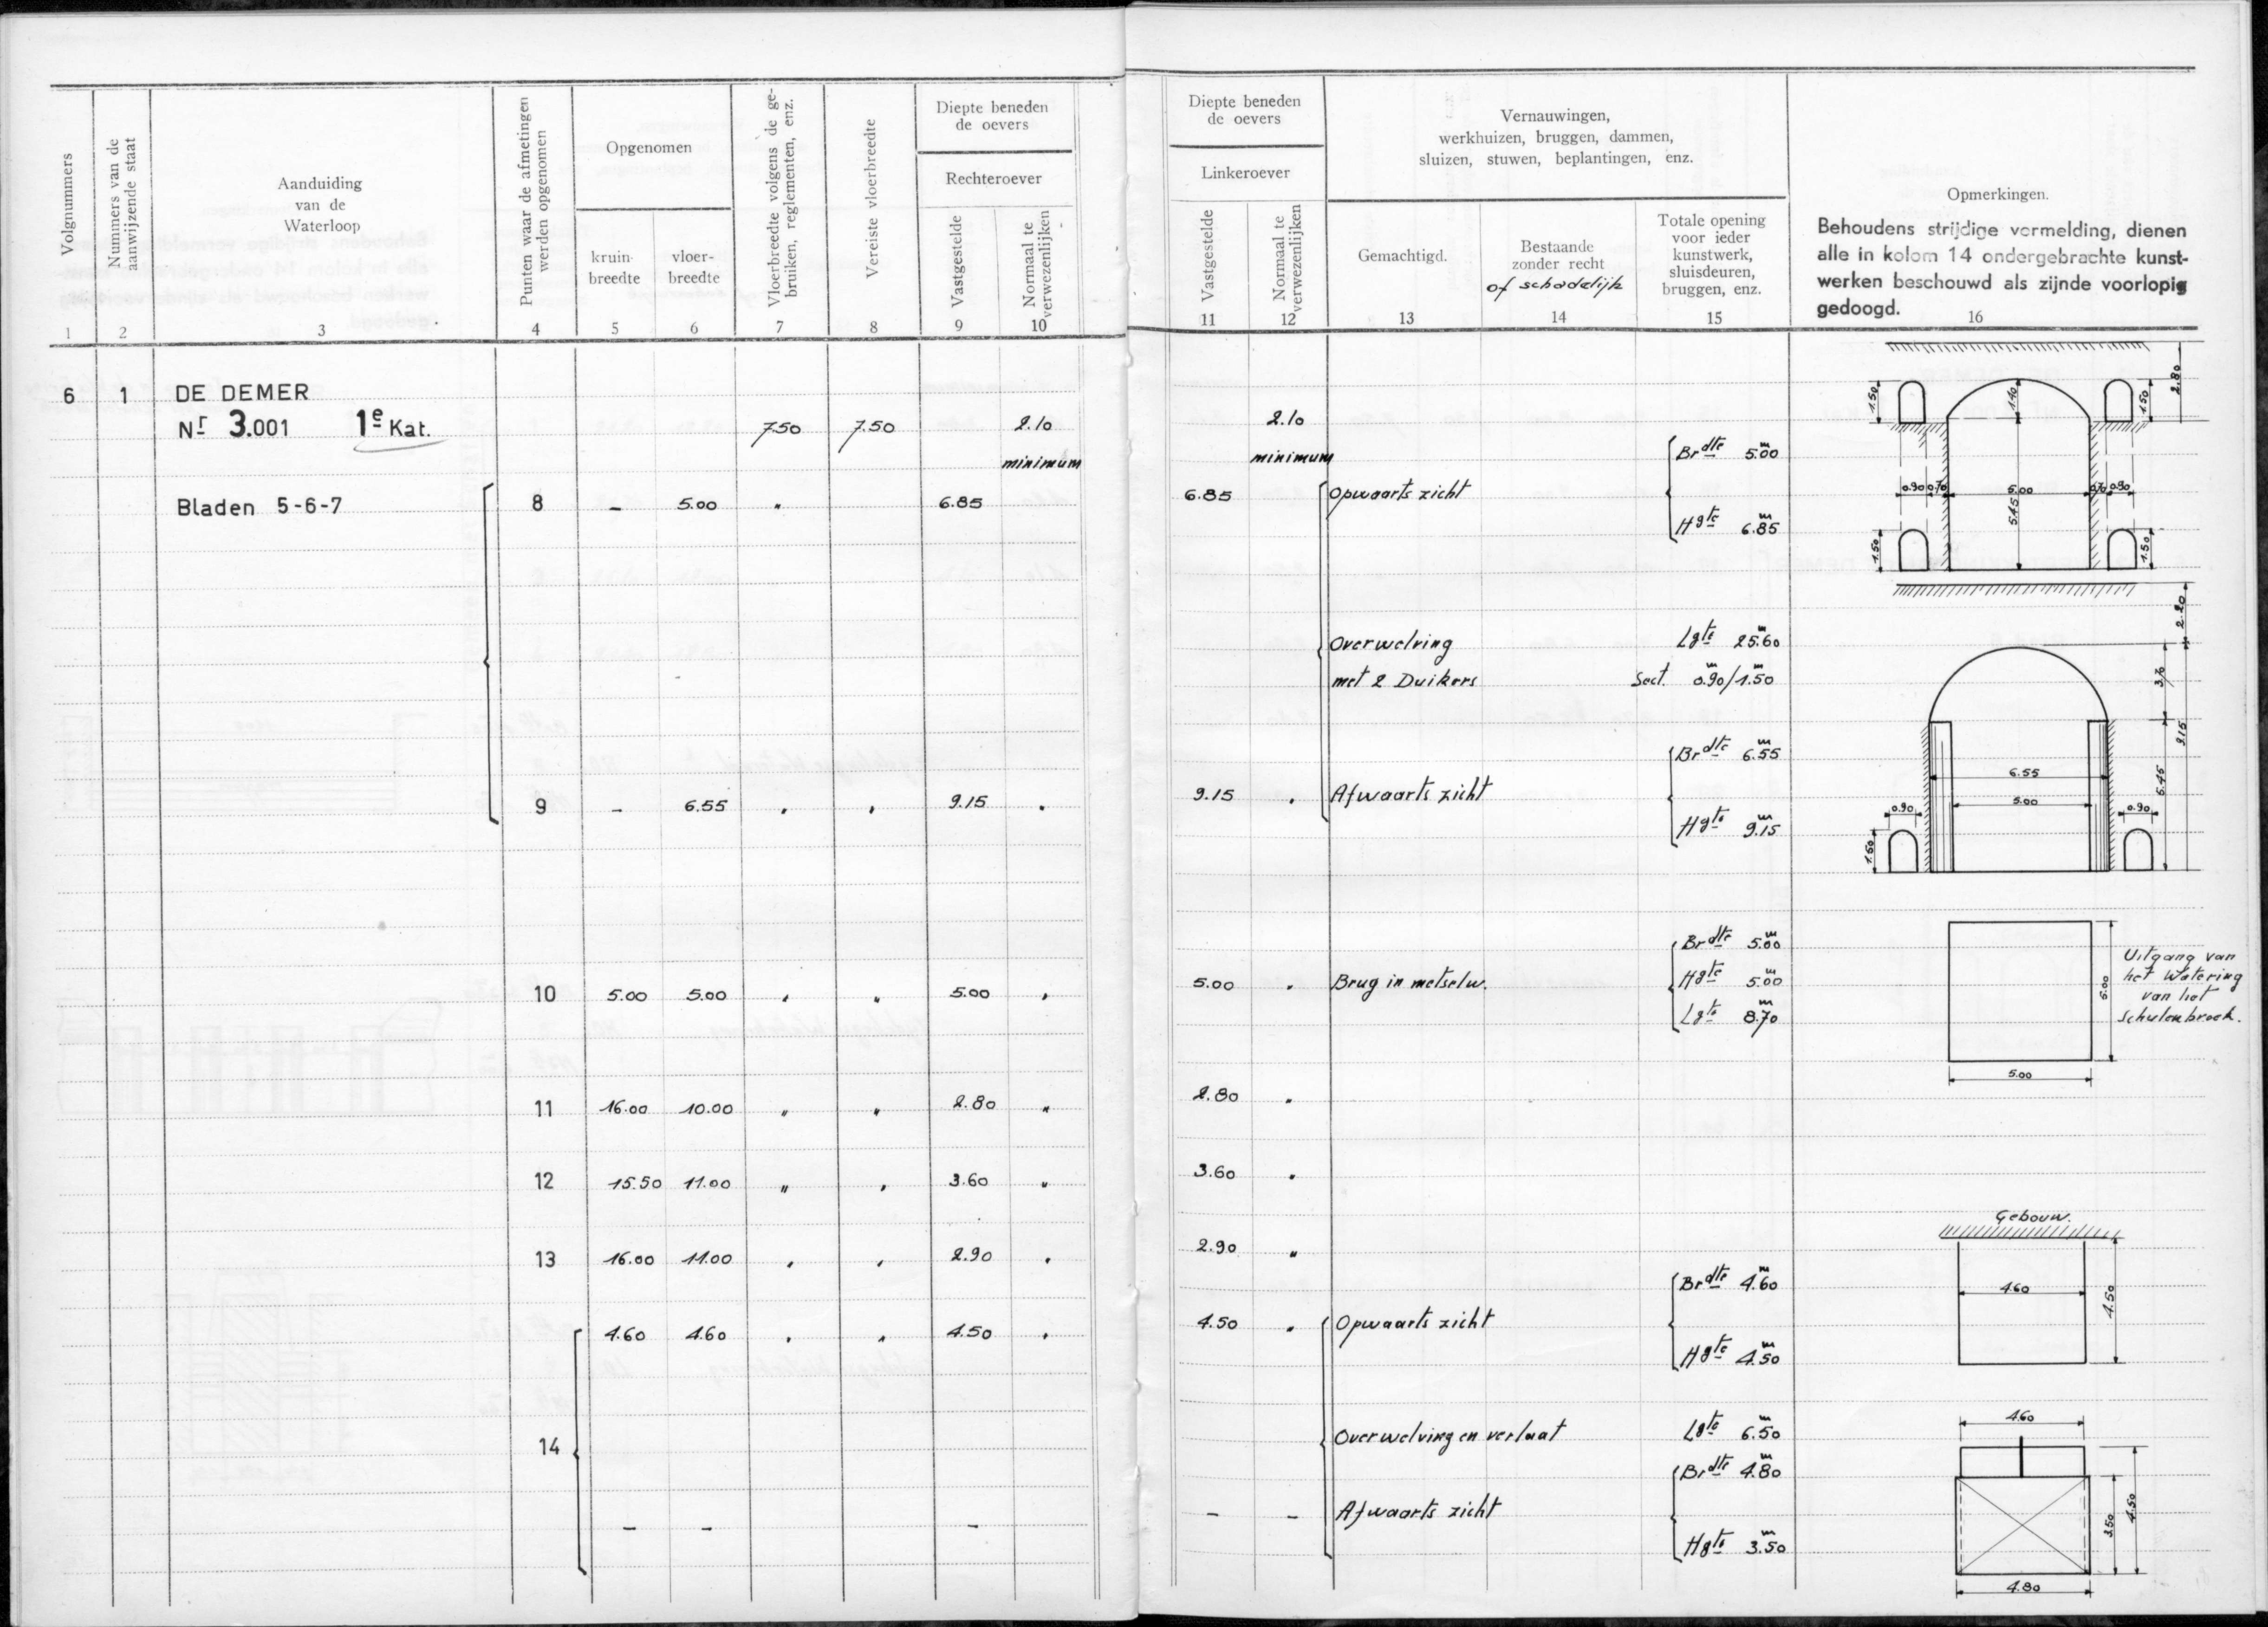 Volgnummers
Nummers van de
aanwijzende staat
Aanduiding
van de
Waterloop
Punten waar de afmetingen
werden opgenomen
Opgenomen
kruin-
breedte
vloer-
breedte
Vloerbreedte volgens de ge-
bruiken, reglementen, enz.
Vereiste vloerbreedte
Diepte beneden
de oevers
Rechteroever
Vastgestelde
Normaal te
verwezenlijken
1 2 3 4 5 6 7 8 9 10
Diepte beneden
de oevers
Linkeroever
Vastgestelde
Normaal te
verwezenlijken
Vernauwingen,
werkhuizen, bruggen, dammen,
sluizen, stuwen, beplantingen, enz.
Gemachtigd.
Bestaande
zonder recht
of schadelijk
Totale opening
voor ieder
kunstwerk,
sluisdeuren,
bruggen, enz.
Opmerkingen.
Behoudens strijdige vermelding, dienen
alle in kolom 14 ondergebrachte kunst-
werken beschouwd als zijnde voorlopig
gedoogd.
11 12 13 14 15 16
6 1 DE DEMER
Nr 3.001 1e Kat. 7.50 7.50 2.10
minimum
Bladen 5-6-7 8 – 5.00 " 6.85
9 – 6.55 " " 9.15 "
10 5.00 5.00 " " 5.00 "
11 16.00 10.00 " " 2.80 "
12 15.50 11.00 " " 3.60 "
13 16.00 11.00 " " 2.90 "
4.60 4.60 " " 4.50 "
14
– – –
2.10
minimum
Brdte 5.00m
6.85 Opwaarts zicht
Hgte 6.85m
Overwelving Lgte 25.60m
met 2 Duikers Sect. 0.90m/1.50m
Brdte 6.55m
9.15 " Afwaarts zicht
Hgte 9.15m
Brdte 5.00m
5.00 " Brug in metselw. Hgte 5.00m
Lgte 8.70m
2.80 "
3.60 "
2.90 "
Brdte 4.60m
4.50 " Opwaarts zicht
Hgte 4.50m
Overwelving en verlaat Lgte 6.50m
Brdte 4.80m
– – Afwaarts zicht
Hgte 3.50m
2.80
1.50 1.40 1.50
0.90 0.70 5.00 0.70 0.90
5.45
1.50 1.50
2.20
3.70
9.15
6.55
5.45
5.00
0.90 0.90
1.50
Uitgang van
het Watering
van het
Schulenbroek.
5.00
5.00
Gebouw.
4.60
4.50
4.60
3.50 4.50
4.80